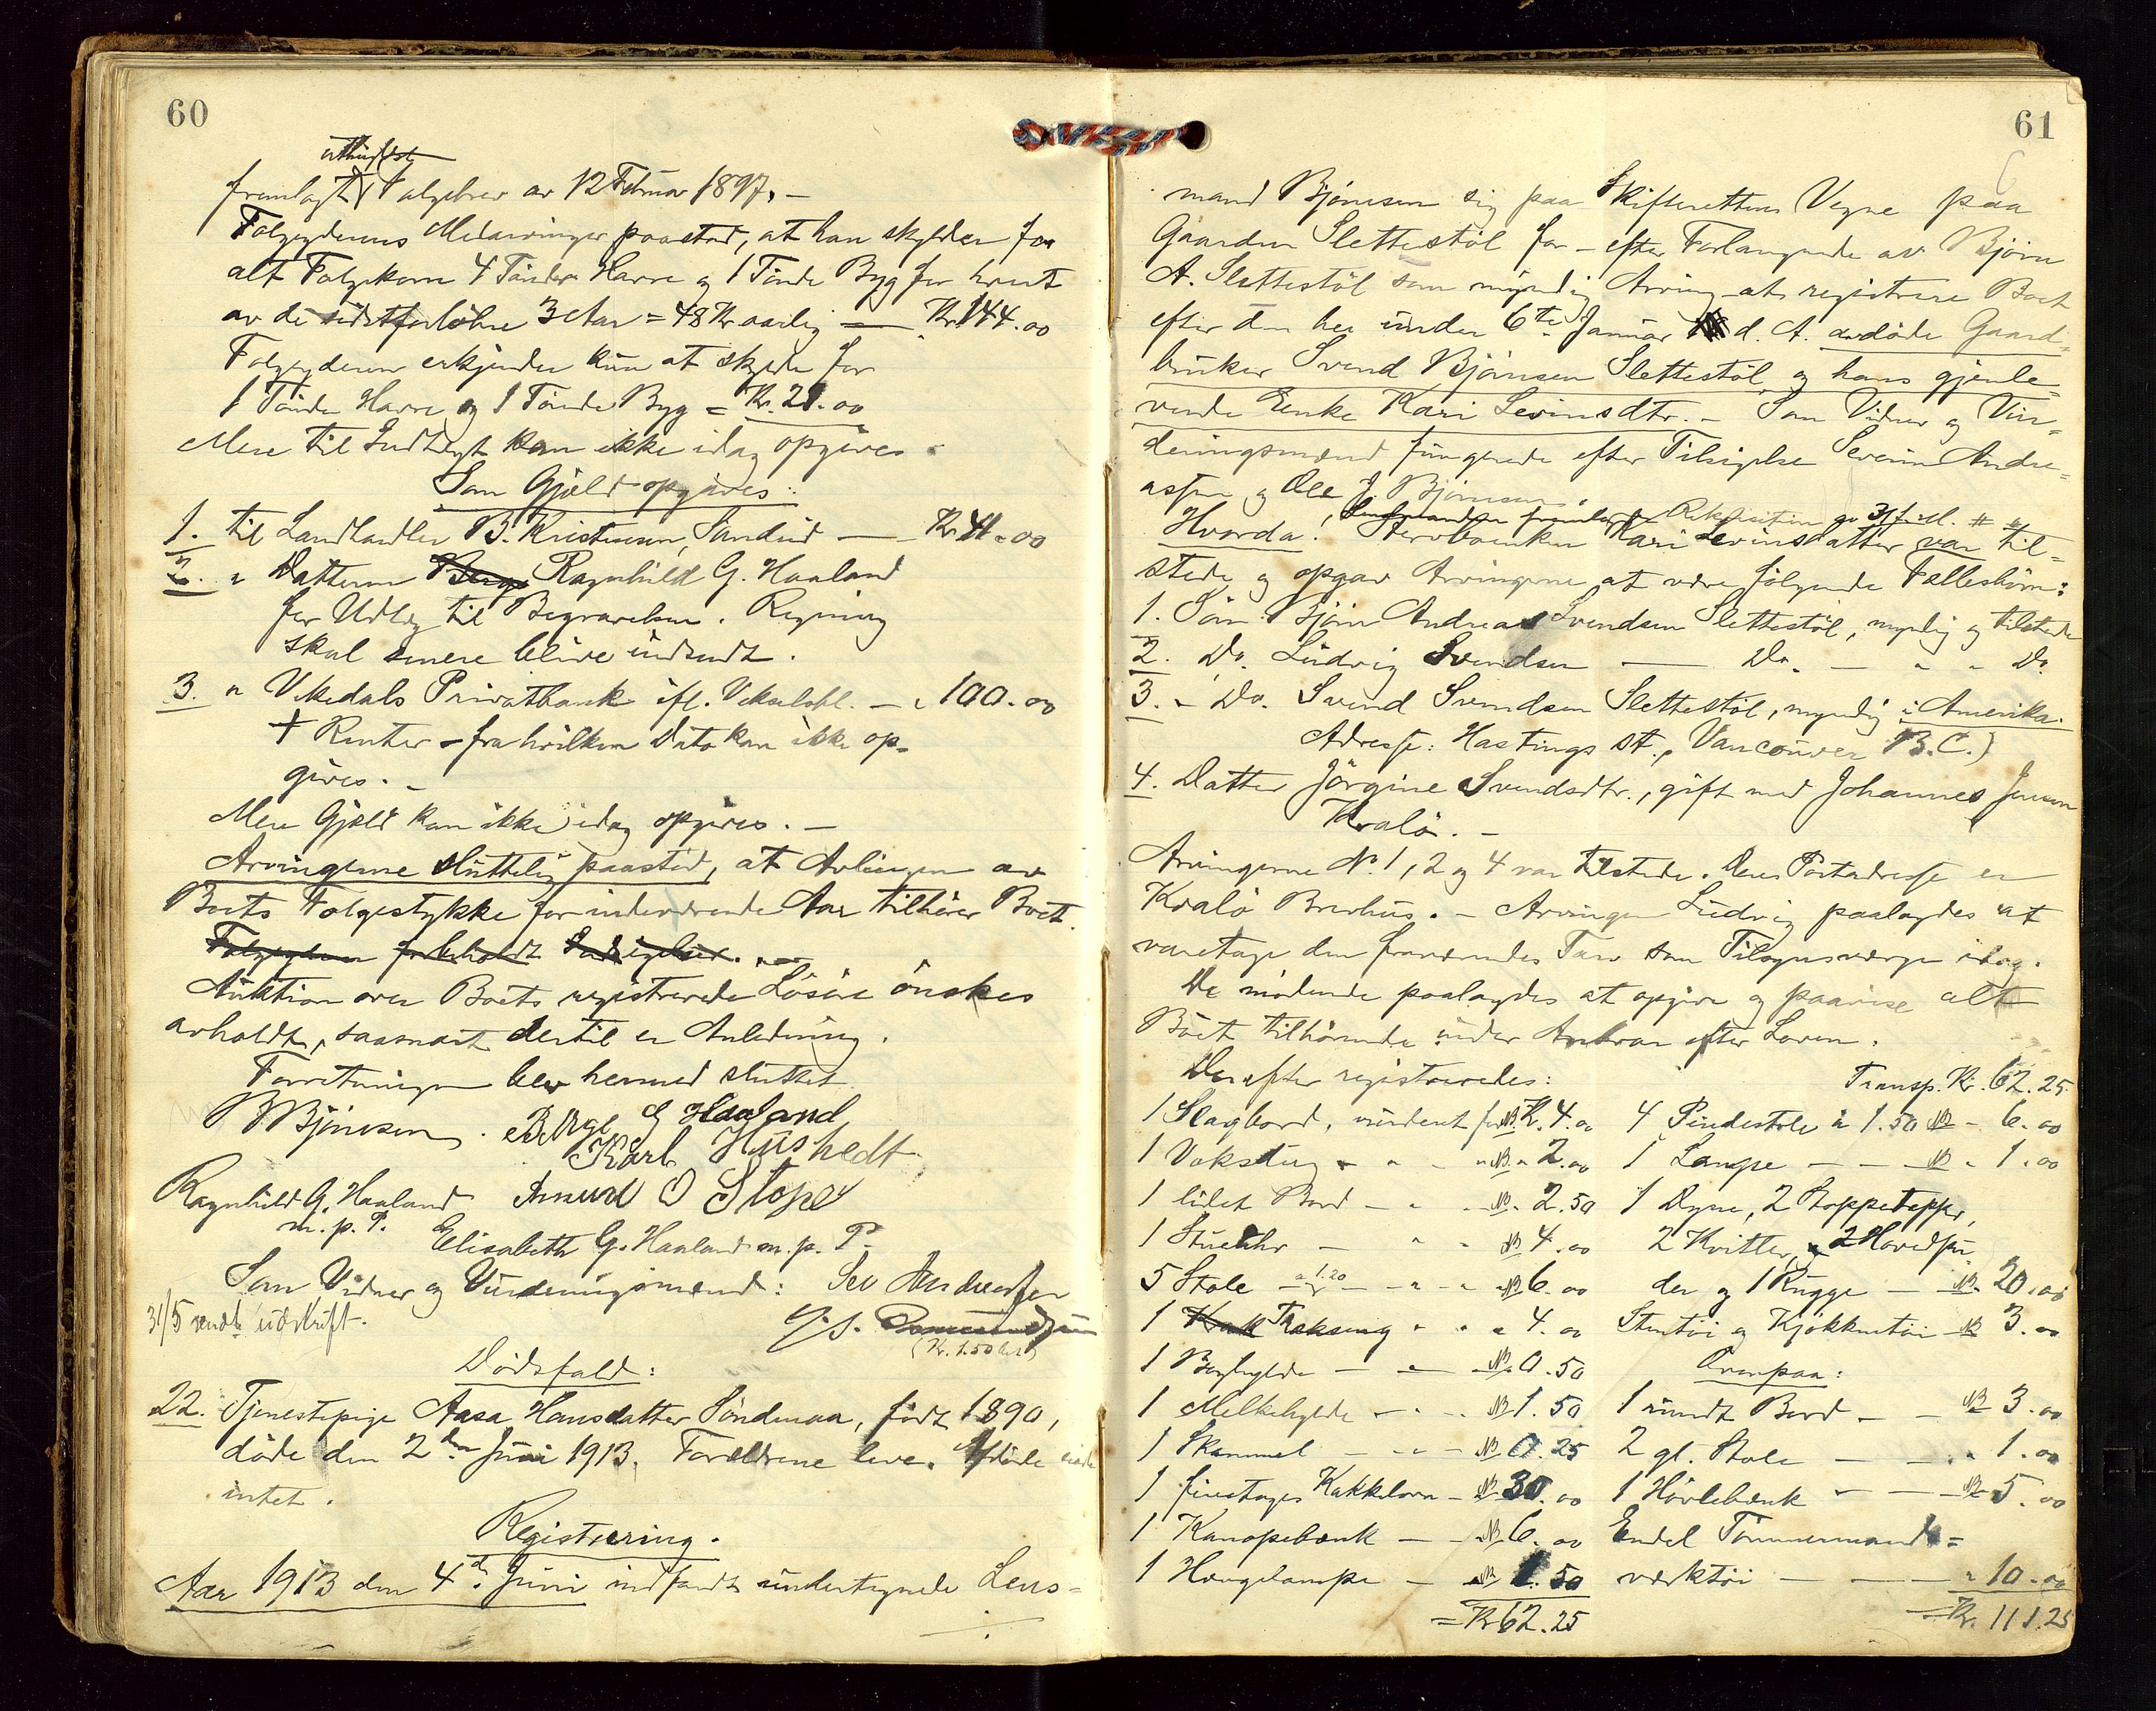 60
fremlagt Folgebrev av 12 Februar 1897. –
Folgyderens Medarvinger paastod, at han skylder for
alt Folgekorn 4 Tønder Havre og 1 Tønde Byg for hvert
av de sidstforløbne 3 Aar = 48 Kr. aarlig — Kr. 144.00
Folgyderen erkjender kun at skylde for
1 Tønde Havre og 1 Tønde Byg = Kr. 21.00
Mere til Indtægt kan ikke idag opgives.
Som Gjæld opgaves:
1. til Landhandler B. Kristensen, Sandeid — Kr. 41.00
2. " Datteren Ragnhild G. Haaland
for Utlæg til Begravelsen. Regning
skal senere blive indsendt.
3. " Vikedals Privatbank ifl. Vekselobl. — " 100.00
+ Renter – fra hvilken Dato kan ikke op-
gives. –
Mere Gjæld kan ikke idag opgives. –
Arvingerne sluttelig paastod, at Avlingen av
Boets Folgestykke for indeværende Aar tilhører Boet.
Auktion over Boets registrerede Løsøre ønskes
avholdt, saasnart dertil er Anledning.
Forretningen blev hermed sluttet
B Bjørnsen. Børge G Haaland
Karl Hushedt
Ragnhild G. Haaland Amund O Stople
m. p. P. Elisabeth G. Haaland m. p. P.
Som Vidner og Vurderingsmænd: Sev Andreassen
31/5 sendt utskrift.
(Kr. 1.50 bet)
Dødsfald:
22. Tjenestepige Aasa Hansdatter Søndenaa, født 1890,
døde den 2den Juni 1913. Forældrene lever. Afdøde eiede
intet.
Registrering.
Aar 1913 den 4de Juni indfandt undertegnede Lens-
61
mand Bjørnsen sig paa Skifterettens Vegne paa
Gaarden Slettestøl for – efter Forlangende av Bjørn
A. Slettestøl som myndig Arving – at registrere Boet
efter den her under 6te Januar d. A. avdøde Gaard-
bruker Svend Bjørnsen Slettestøl og hans gjenle-
vende Enke Kari Levinsdtr. – Som Vidner og Vur-
deringsmænd fungerede efter Tilsigelse Severin Andre-
assen og Ole J. Bjørnsen.
Hvorda: Sterboenken Kari Levinsdatter var til-
stede og opgav Arvingerne at være følgende Fællesbørn:
1. Søn Bjørn Andreas Svendsen Slettestøl, myndig og tilstede
2. Do. Ludvig Svendsen — Do. — " " Do.
3. " Do. Svend Svendsen Slettestøl, myndig i Amerika.
Adresse: Hastings st., Vancouver B.C.)
4. Datter Jørgine Svendsdtr., gift med Johannes Jensen
Kralø. –
Arvingerne No. 1, 2 og 4 var tilstede. Deres Postadresse er
Kralø Brevhus. – Arvingen Ludvig paalagdes at
varetage den fraværendes Tarv som Tilsynsværge idag.
De mødende paalagdes at opgive og paavise alt
Boet tilhørende under Ansvar efter Loven.
Derefter registreredes:
1 Slagbord, vurderet for NB. Kr. 4.00
1 Vokstug " " " NB " 2.00
1 lidet Bord – " " NB. 2.50
1 Stueuhr — " " NB 4.00
5 Stole à 1.20 " " NB 6.00
1 Træseng " " " 4.00
1 Boghylde — — NB. 0.50
1 Melkehylde – " . NB 1.50
1 Skammel – " " – NB 0.25
1 firetages Kakkelovn – NB 30.00
1 Kanapebænk — – NB 6.00
1 Hængelampe — NB 1.50
= Kr 62.25
Transp. Kr. 62.25
4 Pindestole à 1.50 NB – 6.00
1 Lampe – — NB " 1.00
1 Dyne, 2 Stoppetepper,
2 Kvitler, 2 Hovedpu
der og 1 Rugge — NB. 20.00
Stentøi og Kjøkkentøi NB 3.00
Ovenpaa:
1 rundt Bord – – NB 3.00
2 gl. Stole — — " 1.00
1 Høvlebænk – — NB 5.00
Endel Tømmermands-
værktøi — — " 10.00
= Kr. 111.25